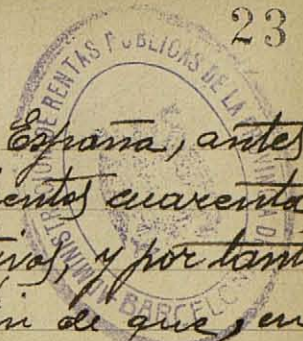 23
ADMINISTRACION DE RENTAS PUBLICAS DE LA PROVINCIA DE BARCELONA
España, antes
cuarenta
y por
de que, en